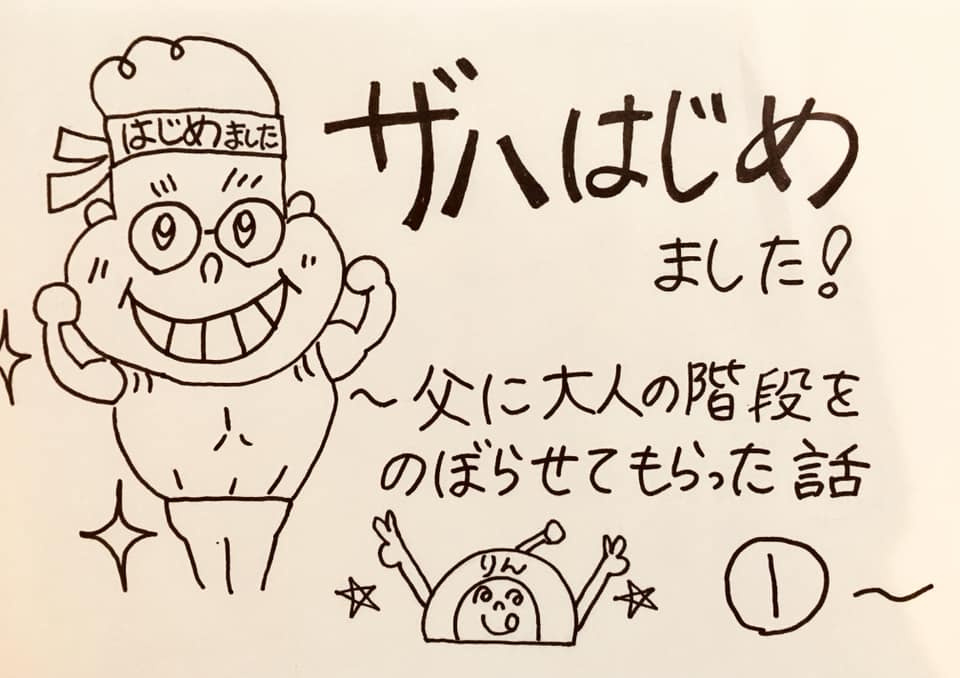 はじめました
ザハはじめ
ました!
～父に大人の階段を
のぼらせてもらった話
りん
①～